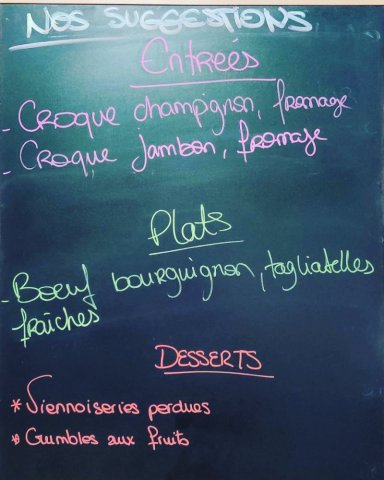 Nos SUGGESTIONS
Entrées
- Croque champignon, fromage
- Croque jambon, fromage
Plats
- Boeuf bourguignon, tagliatelles
fraîches
DESSERTS
* Viennoiseries perdues
* Crumbles aux fruits